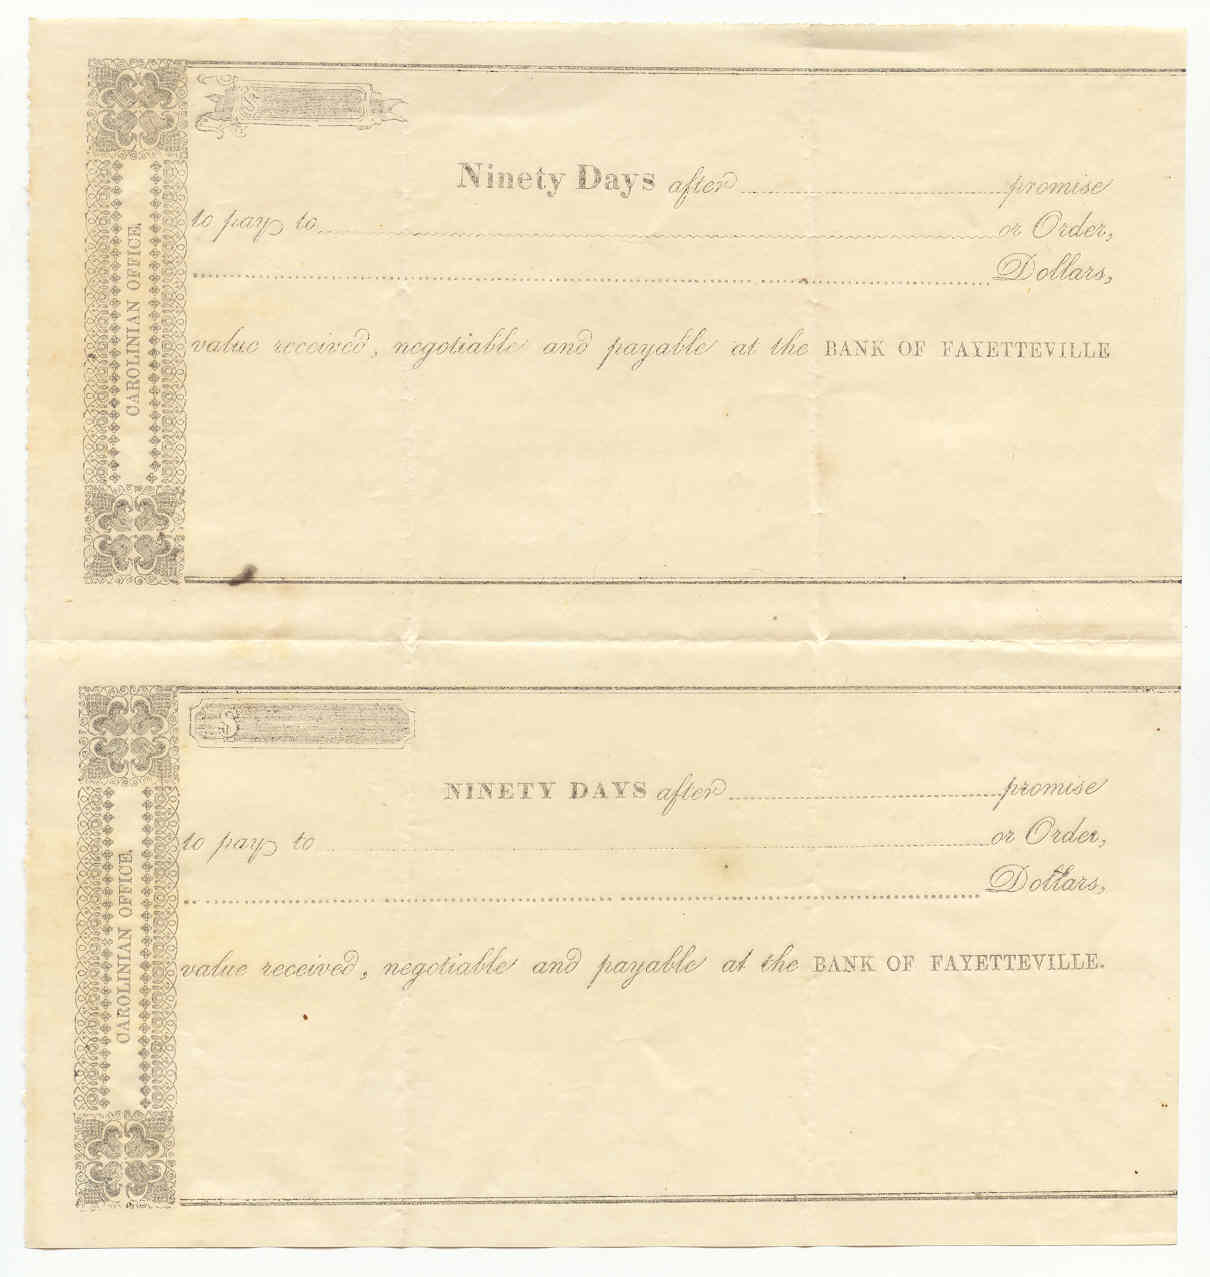 CAROLINIAN OFFICE.
$
Ninety Days after promise
to pay to or Order,
Dollars,
value received, negotiable and payable at the BANK OF FAYETTEVILLE
CAROLINIAN OFFICE.
$
NINETY DAYS after promise
to pay to or Order,
Dollars,
value received, negotiable and payable at the BANK OF FAYETTEVILLE.